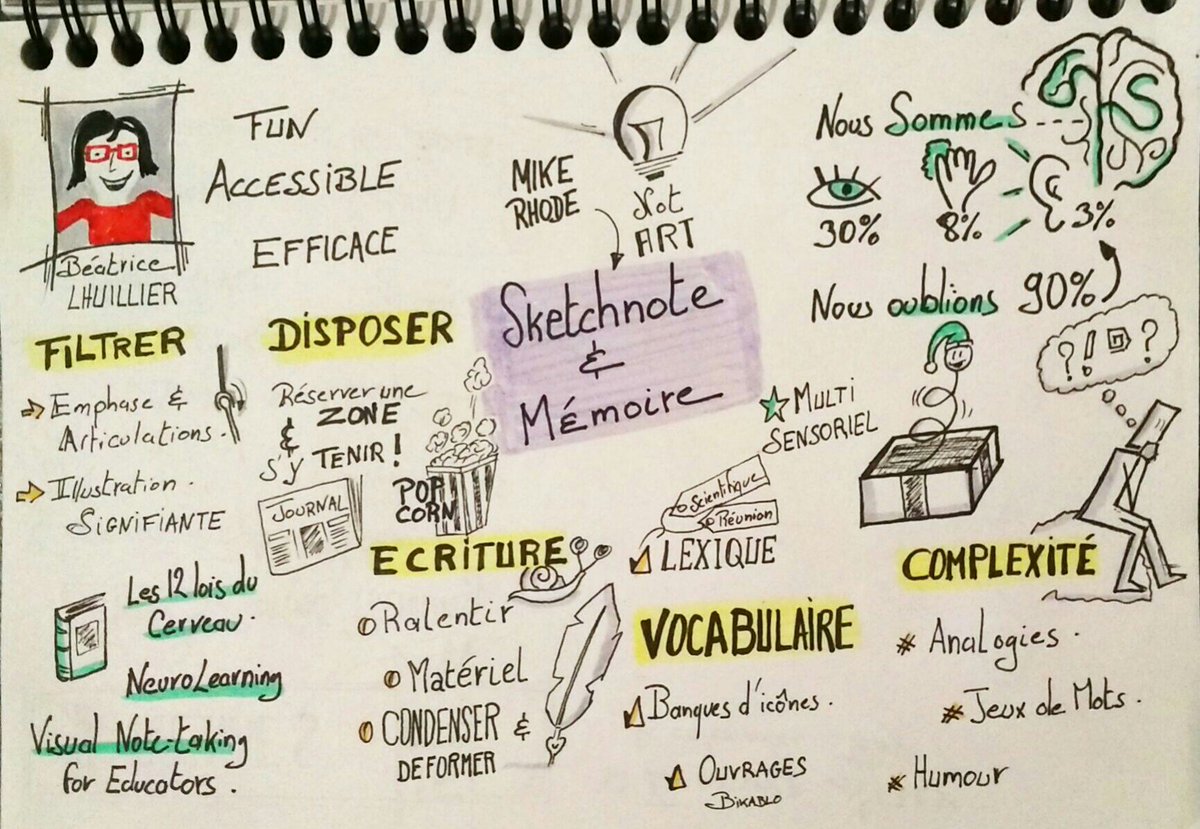 Béatrice
LHUILLIER
FUN
ACCESSIBLE
EFFICACE
MIKE
RHODE
Not
ART
Sketchnote
&
Mémoire
Nous Sommes
30%
8%
3%
Nous oublions 90%
?!?
FILTRER
Emphase &
Articulations.
Illustration.
SIGNIFIANTE
DISPOSER
Réserver une
ZONE
&
s'y TENIR !
JOURNAL
POP
CORN
MULTI
SENSORIEL
Les 12 lois du
Cerveau.
NeuroLearning
Visual Note-taking
for Educators.
ECRITURE
Ralentir
Matériel
CONDENSER &
DEFORMER
Scientifique
Réunion
LEXIQUE
VOCABULAIRE
Banques d'icônes.
OUVRAGES
BIKABLO
COMPLEXITÉ
Analogies.
Jeux de Mots.
Humour